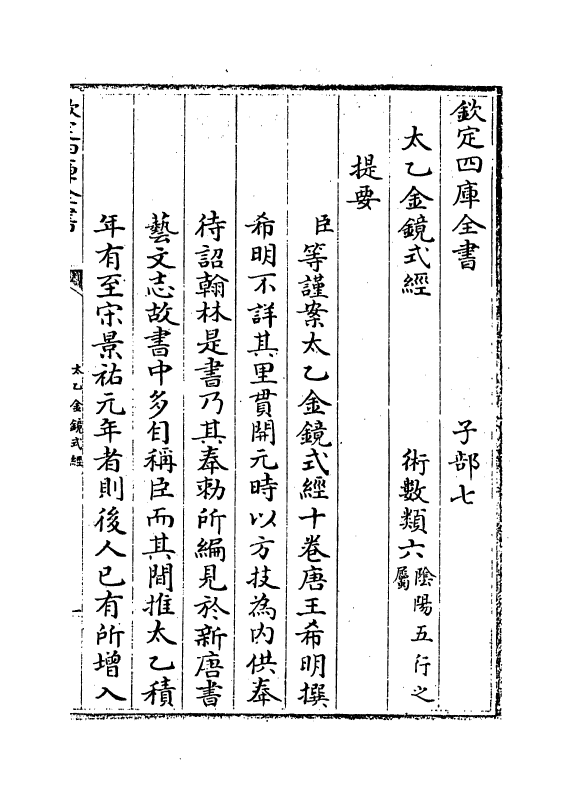 欽定四庫全書　子部七
太乙金鏡式經　術數類六陰陽五行之屬
提要
臣等謹案太乙金鏡式經十卷唐王希明撰
希明不詳其里貫開元時以方技為内供奉
待詔翰林是書乃其奉勅所編見於新唐書
藝文志故書中多自稱臣而其間推太乙積
年有至宋景祐元年者則後人已有所增入
欽定四庫全書
太乙金鏡式經
一